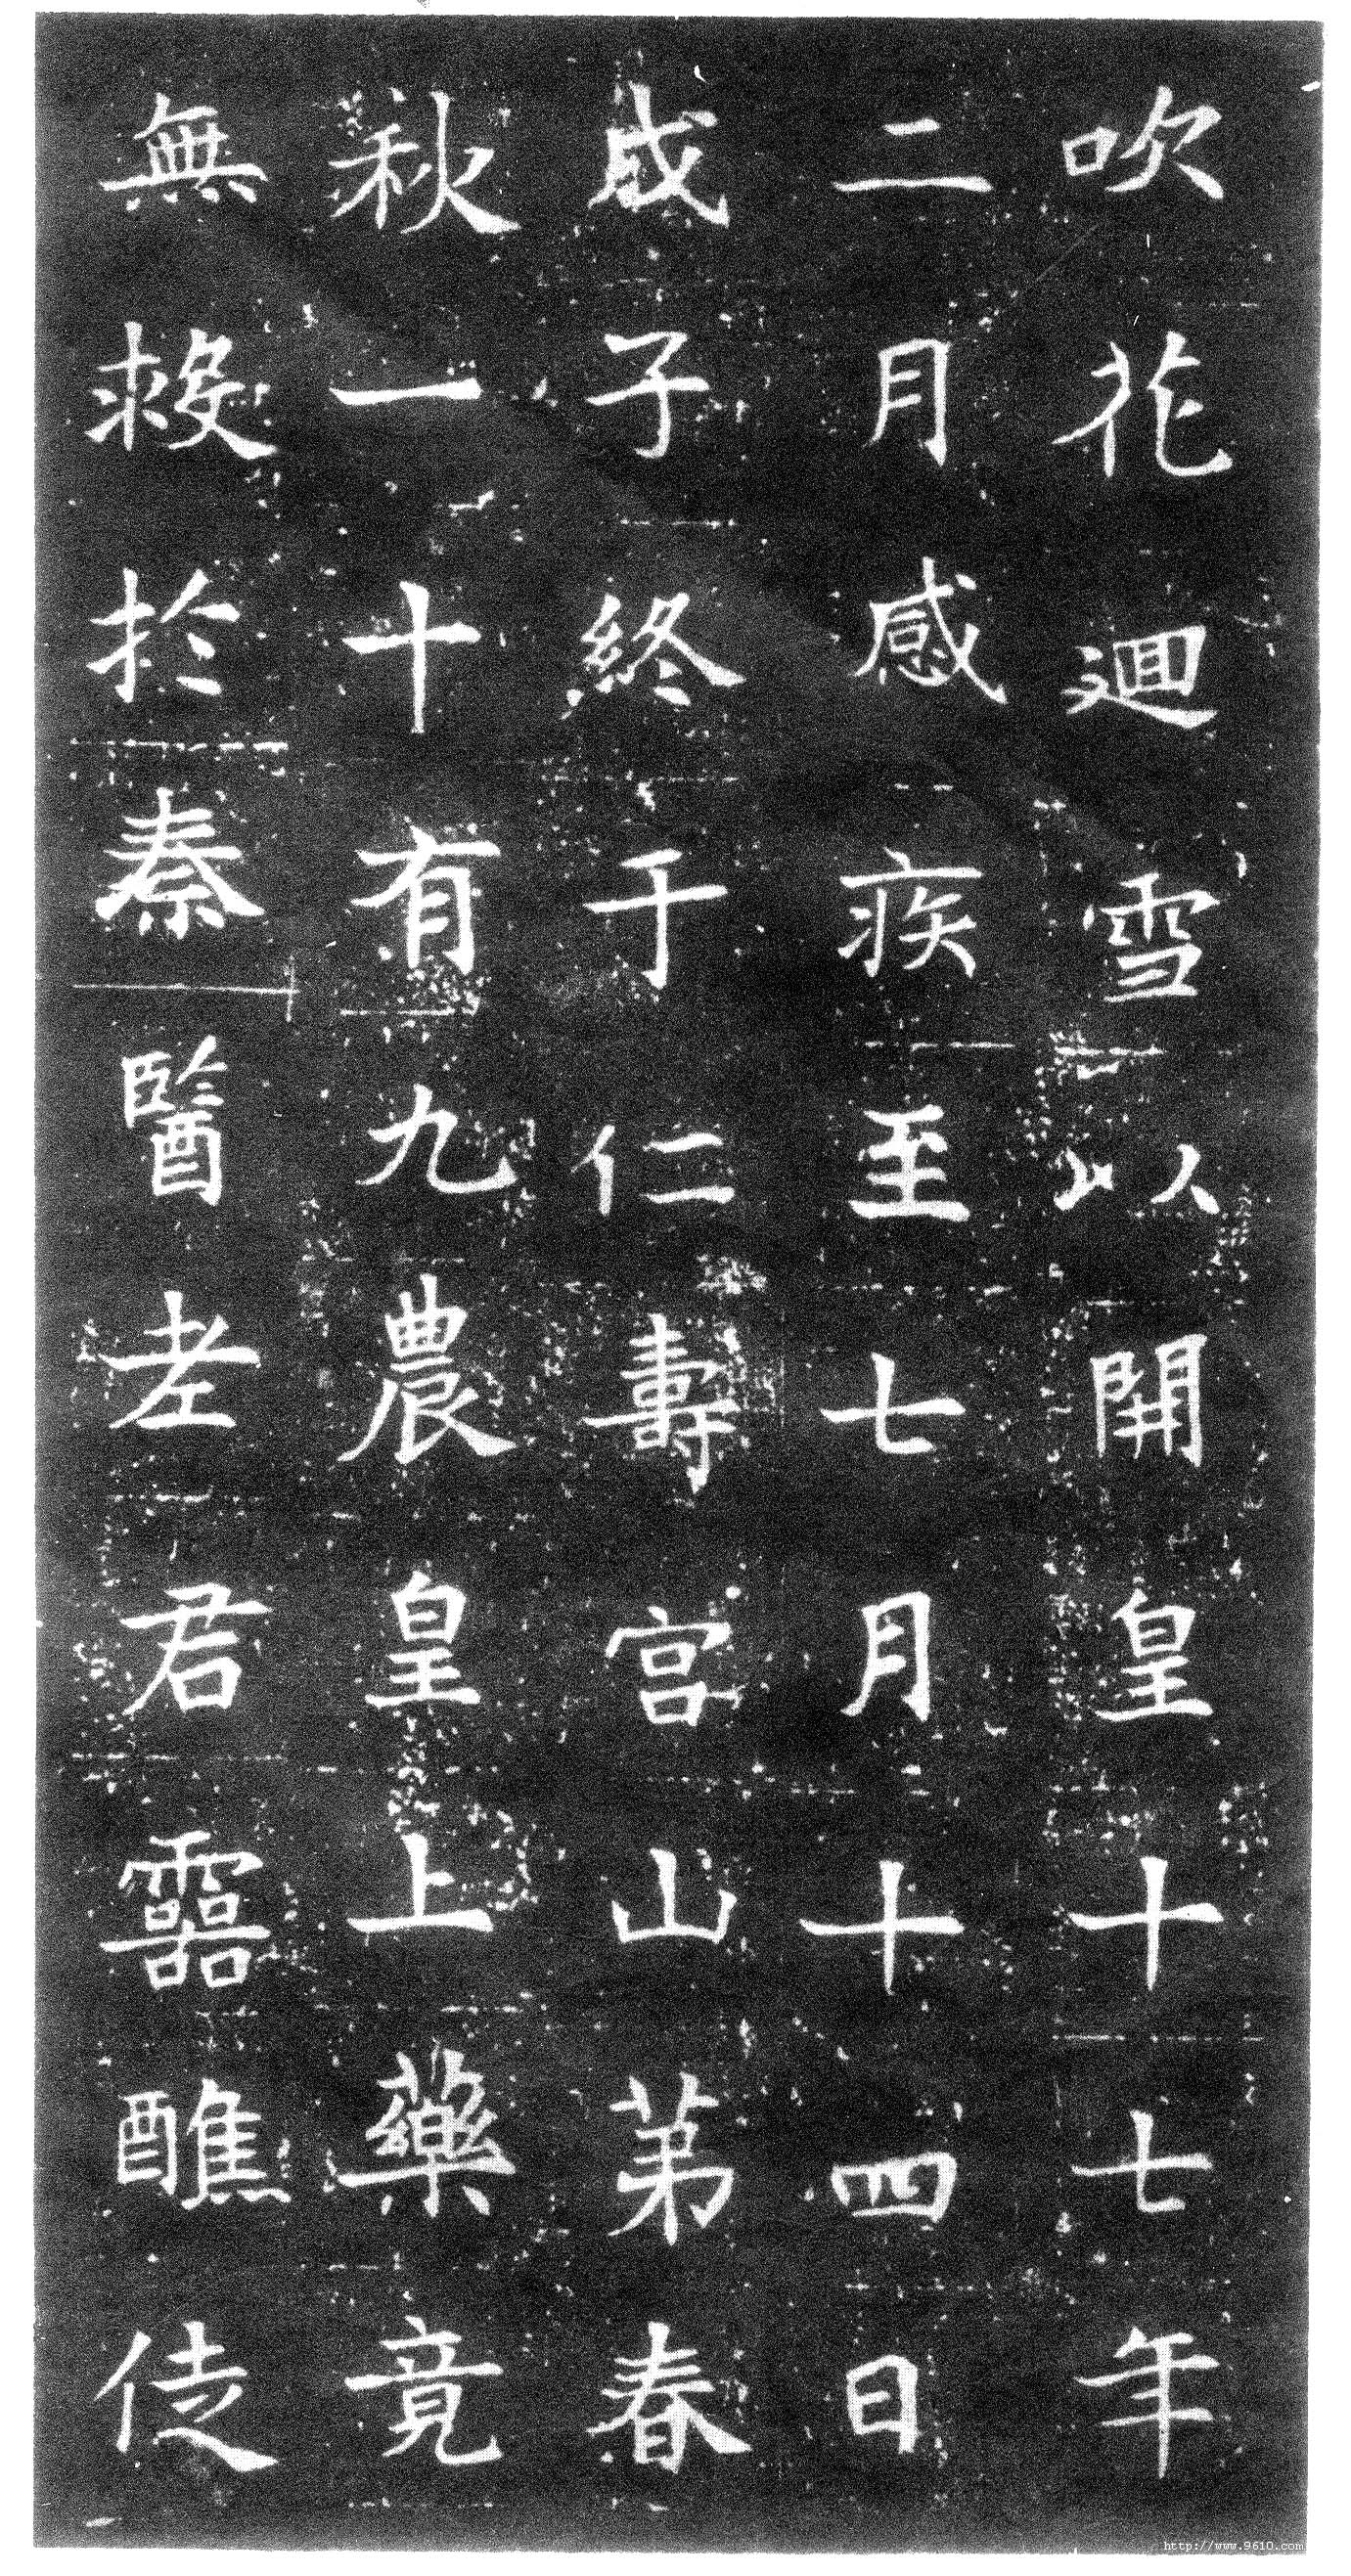 吹花迴雪以開皇十七年
二月感疾至七月十四日
戊子終于仁壽宮山苐春
秋一十有九農皇上藥竟
無救扵秦醫老君靈醮徒
http://www.9610.com